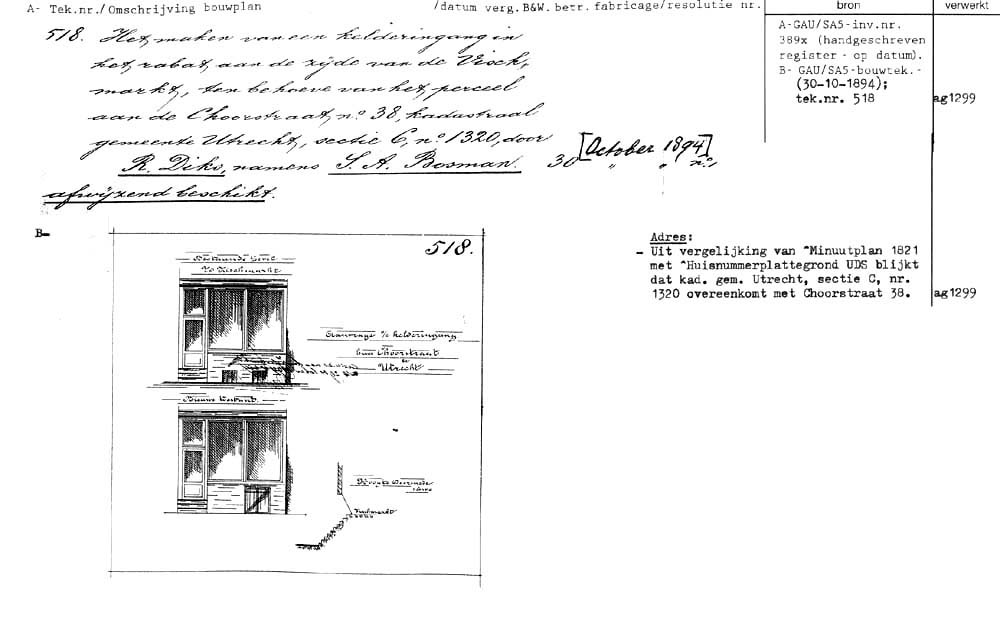 A- Tek.nr./Omschrijving bouwplan /datum verg.B&W.betr.fabricage/resolutie nr. bron verwerkt
518. Het maken van een kelderingang in
het rabat, aan de zijde van de Visch,
markt, ten behoeve van het perceel
aan de Choorstraat, no 38, kadastraal
gemeente Utrecht, sectie C, no 1320, door
R. Diks, namens S. A. Bosman. 30 [October 1894]
" " no 1
afwijzend beschikt.
A-GAU/SA5-inv.nr.
389x (handgeschreven
register - op datum).
B- GAU/SA5-bouwtek.-
(30-10-1894);
tek.nr. 518 ag1299
B-
518.
Bestaande Gevel
Vischmarkt
Aanvrage kelderingang
Choorstraat
te
Utrecht
Nieuwe Toestand
Vischmarkt
Adres:
- Uit vergelijking van ^Minuutplan 1821
met ^Huisnummerplattegrond UDS blijkt
dat kad. gem. Utrecht, sectie C, nr.
1320 overeenkomt met Choorstraat 38. ag1299